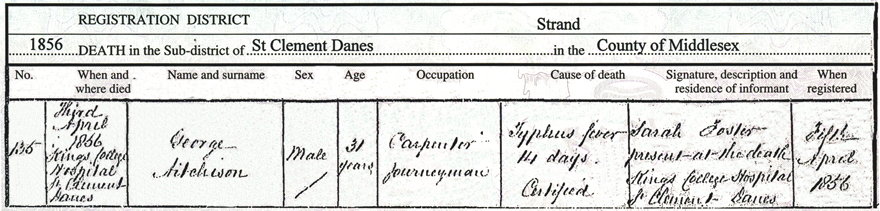 REGISTRATION DISTRICT
Strand
1856 DEATH in the Sub-district of St Clement Danes in the County of Middlesex
No. When and where died Name and surname Sex Age Occupation Cause of death Signature, description and residence of informant When registered
135
Third
April
1856
Kings College
Hospital
St Clement
Danes
George
Aitchison
Male
31
years
Carpenter
Journeyman
Typhus fever
14 days.
Certified
Sarah Foster
present at the death
Kings College Hospital
St Clement Danes
Fifth
April
1856